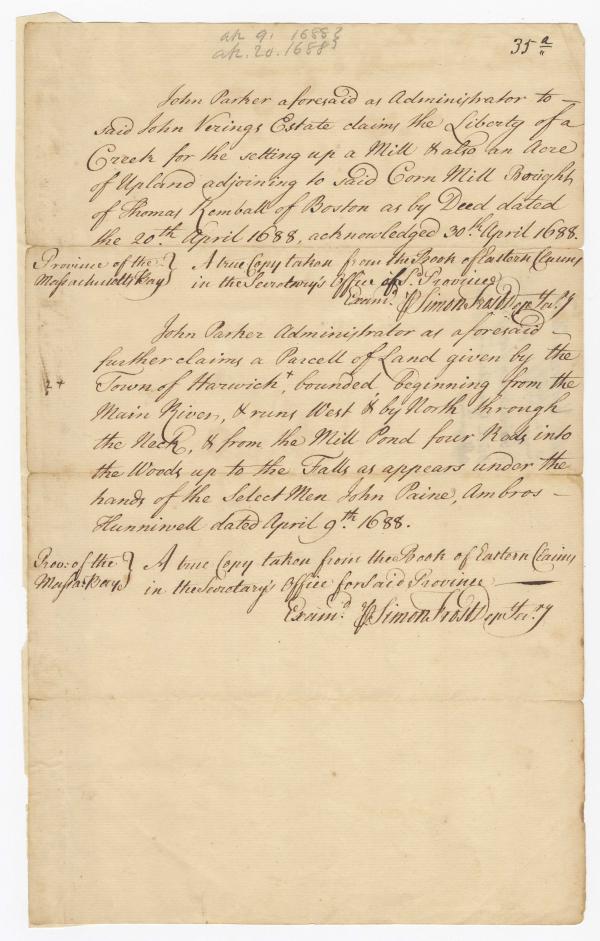 ap. 9. 1688?
ap. 20. 1688?
35 a
John Parker aforesaid as Administrator to —
said John Verings Estate claims the Liberty of a
Creek for the setting up a Mill & also an Acre
of Upland adjoining to said Corn Mill Bought
of Thomas Kemball of Boston as by Deed dated
the 20.th April 1688, acknowledged 30.th April 1688.
Province of the } A true Copy taken from the Book of Eastern Claims
Massachusetts Bay } in the Secretary's Office of S.d Province
Exam.d p Simon Frost Dep.ty Sec.ry
John Parker Administrator as aforesaid —
further claims a Parcell of Land given by the
Town of Harwich +, bounded, beginning from the
Main River, & runs West & by North through
the Neck, & from the Mill Pond four Rods into
the Woods up to the Falls as appears under the
hands of the Select Men John Paine, Ambros —
Hunniwell dated April 9.th 1688.
Prov: of the } A true Copy taken from the Book of Eastern Claims
Massa: Bay } in the Secretary's Office for Said Province —
Exam.d p Simon Frost Dep.ty Sec.ry